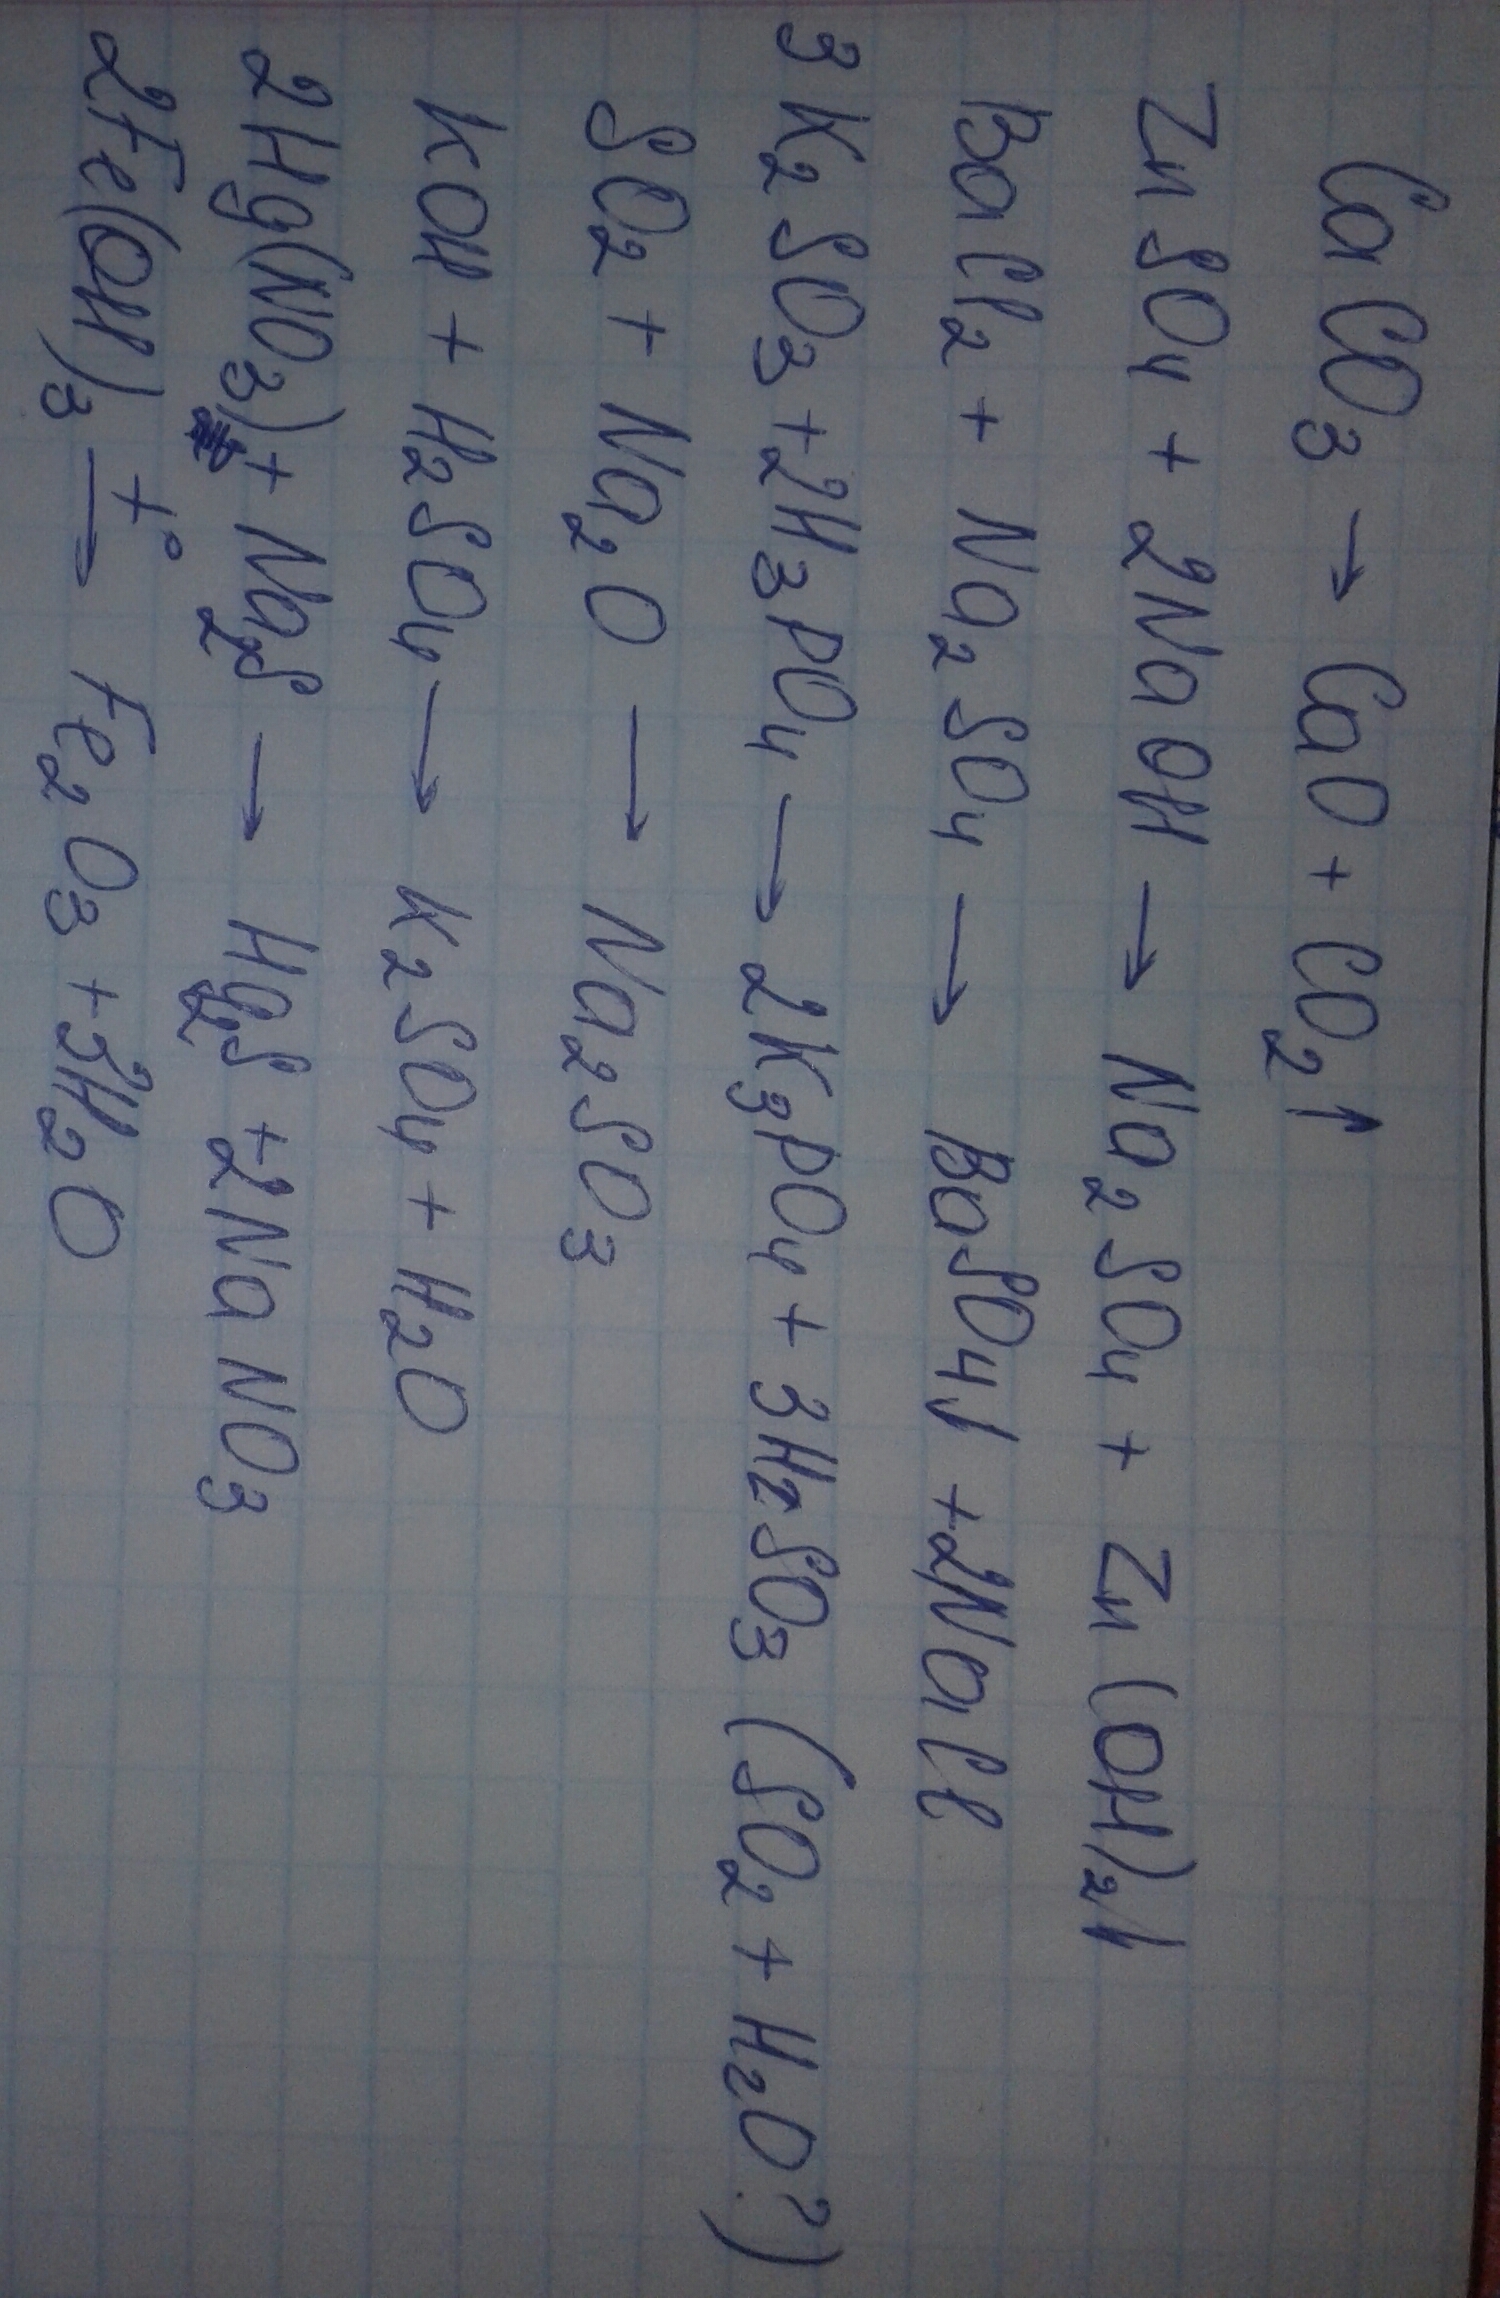 CaCO₃ → CaO + CO₂↑
ZnSO₄ + 2NaOH → Na₂SO₄ + Zn(OH)₂↓
BaCl₂ + Na₂SO₄ → BaSO₄↓ + 2NaCl
3K₂SO₃ + 2H₃PO₄ → 2K₃PO₄ + 3H₂SO₃ (SO₂ + H₂O?)
SO₂ + Na₂O → Na₂SO₃
KOH + H₂SO₄ → K₂SO₄ + H₂O
2Hg(NO₃) + Na₂S → Hg₂S + 2NaNO₃
2Fe(OH)₃ t° → Fe₂O₃ + 3H₂O